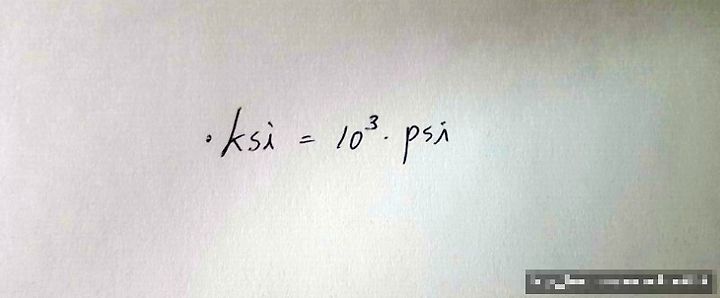 ·ksi = 10³· psi